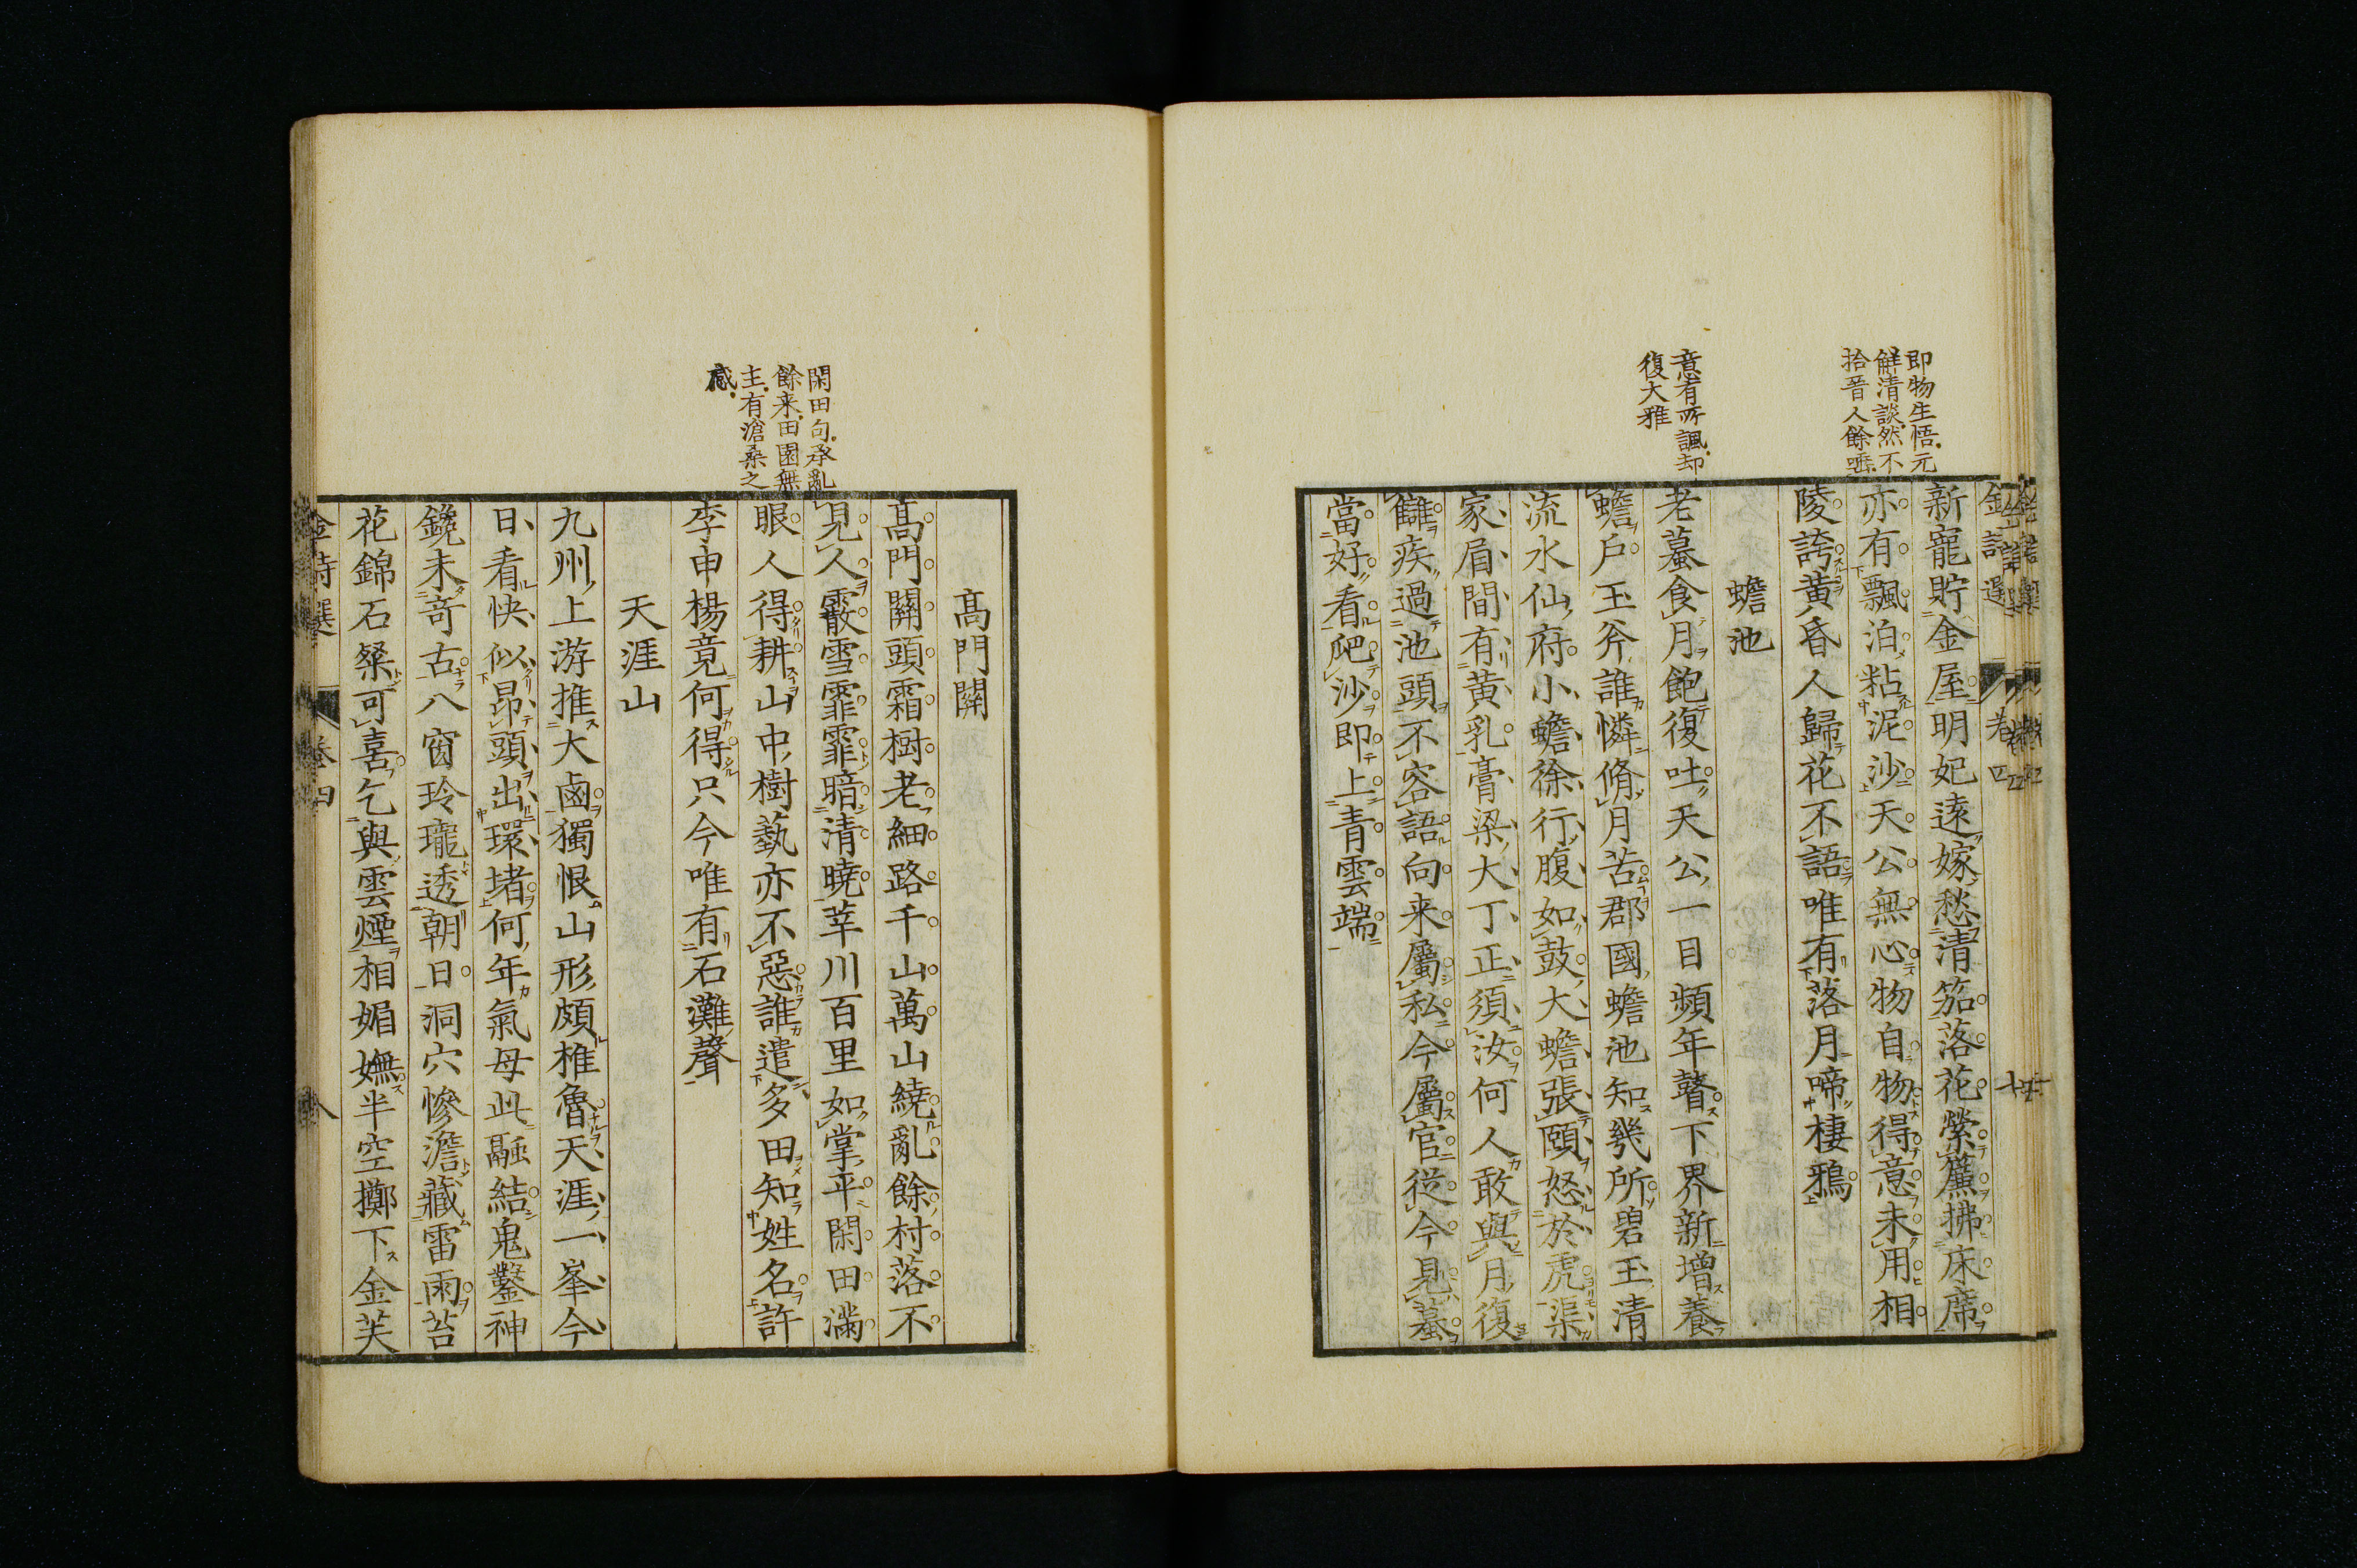 即物生悟元
解清談然不
拾晉人餘唾
意有所諷却
復大雅
新寵貯金屋明妃遠嫁愁清笳落花縈簾拂床席
亦有飄泊粘泥沙天公無心物自物得意未用相
陵誇黄昏人歸花不語唯有落月啼棲鴉
蟾池
老蟇食月飽復吐天公一目頻年瞽下界新增養
蟾戶玉斧誰憐脩月苦郡國蟾池知幾所碧玉清
流水仙府小蟾徐行腹如鼓大蟾張頤怒於虎渠
家眉間有黄乳膏粱大丁正須汝何人敢與月復
讎疾過池頭不容語向来屬私今屬官從今見蟇
當好看爬沙即上青雲端
閑田句承亂
餘来田園無
主有滄桑之
感
髙門關
髙門關頭霜樹老細路千山萬山繞亂餘村落不
見人霰雪霏霏暗清曉莘川百里如掌平閑田滿
眼人得耕山中樹藝亦不惡誰遣多田知姓名許
李申楊竟何得只今唯有石灘聲
天涯山
九州上游推大鹵獨恨山形頗椎魯天涯一峯今
日看快似昂頭出環堵何年氣母此融結鬼鑿神
鑱未奇古八窗玲瓏透朝日洞穴慘澹藏雷雨苔
花錦石粲可喜乞與雲煙相媚嫵半空擲下金芙
金詩選 卷四 八